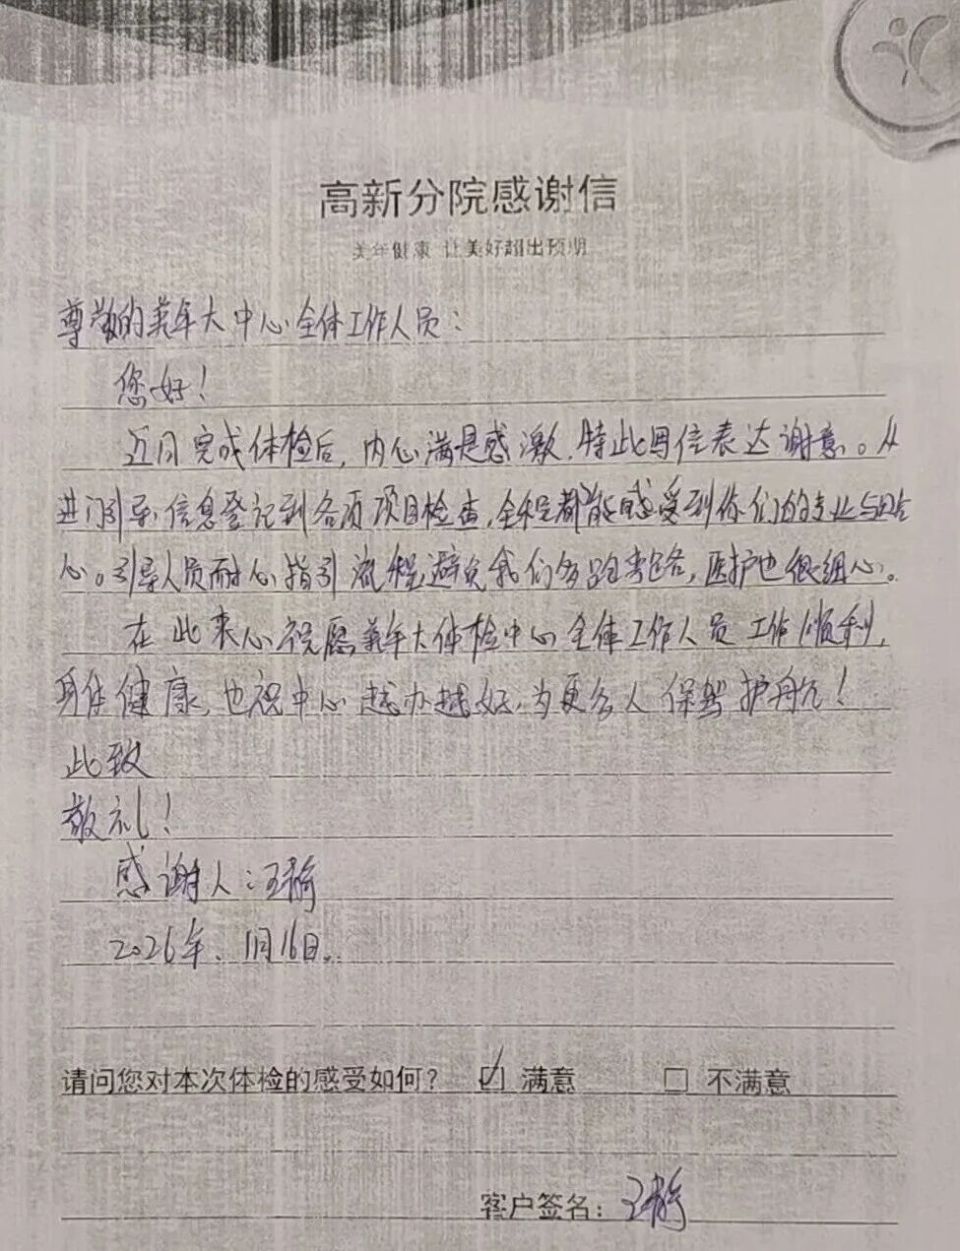 高新分院感谢信
美年健康 让美好超出预期
尊敬的美年大中心全体工作人员：
您好！
近日完成体检后，内心满是感激，特此写信表达谢意。从
进门引导，信息登记到各项项目检查，全程都能感受到你们的专业与贴
心。引导人员耐心指引流程避免我们多跑弯路，医护也很细心。
在此衷心祝愿美年大体检中心全体工作人员工作顺利，
身体健康，也祝中心越办越好，为更多人保驾护航！
此致
敬礼！
感谢人：王静
2026年、1月16日。
请问您对本次体检的感受如何？ ☑ 满意 □ 不满意
客户签名：王静